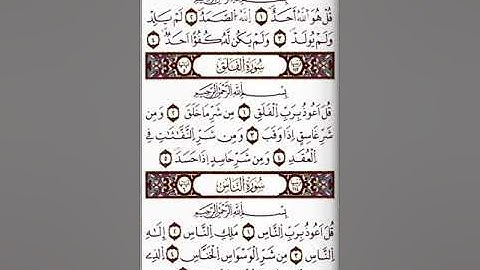 بِسْمِ اللَّهِ الرَّحْمَٰنِ الرَّحِيمِ
قُلْ هُوَ اللَّهُ أَحَدٌ ١ اللَّهُ الصَّمَدُ ٢ لَمْ يَلِدْ
وَلَمْ يُولَدْ ٣ وَلَمْ يَكُن لَّهُ كُفُوًا أَحَدٌ ٤
سُورَةُ الْفَلَقِ
بِسْمِ اللَّهِ الرَّحْمَٰنِ الرَّحِيمِ
قُلْ أَعُوذُ بِرَبِّ الْفَلَقِ ١ مِن شَرِّ مَا خَلَقَ ٢ وَمِن
شَرِّ غَاسِقٍ إِذَا وَقَبَ ٣ وَمِن شَرِّ النَّفَّاثَاتِ فِي
الْعُقَدِ ٤ وَمِن شَرِّ حَاسِدٍ إِذَا حَسَدَ ٥
سُورَةُ النَّاسِ
بِسْمِ اللَّهِ الرَّحْمَٰنِ الرَّحِيمِ
قُلْ أَعُوذُ بِرَبِّ النَّاسِ ١ مَلِكِ النَّاسِ ٢ إِلَٰهِ
النَّاسِ ٣ مِن شَرِّ الْوَسْوَاسِ الْخَنَّاسِ ٤ الَّذِي